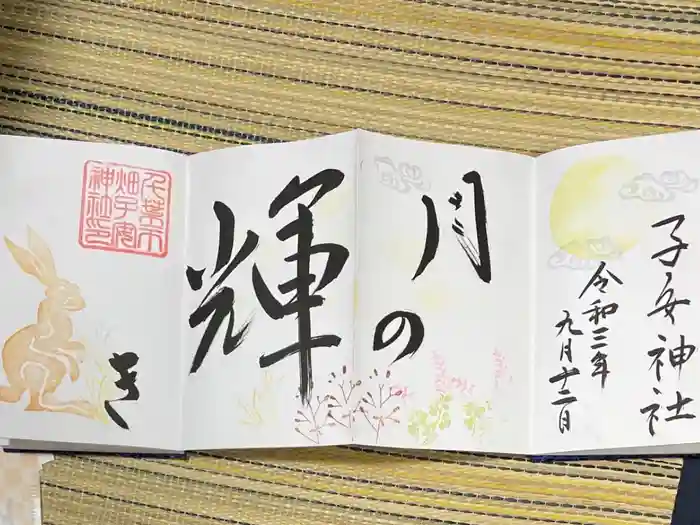 子安神社
令和三年
九月十二日
月の
輝
き
千葉市
畑子安
神社印